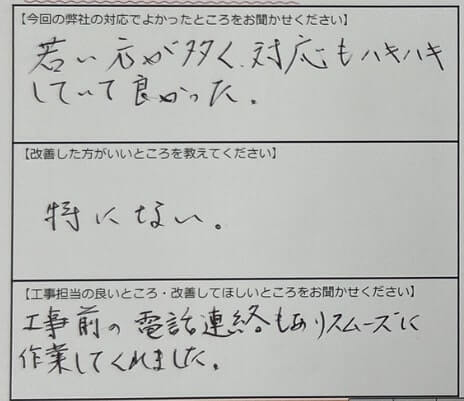 【今回の弊社の対応でよかったところをお聞かせください】
若い方が多く、対応もハキハキ
していて良かった。
【改善した方がいいところを教えてください】
特にない。
【工事担当の良いところ・改善してほしいところをお聞かせください】
工事前の電話連絡もありスムーズに
作業してくれました。